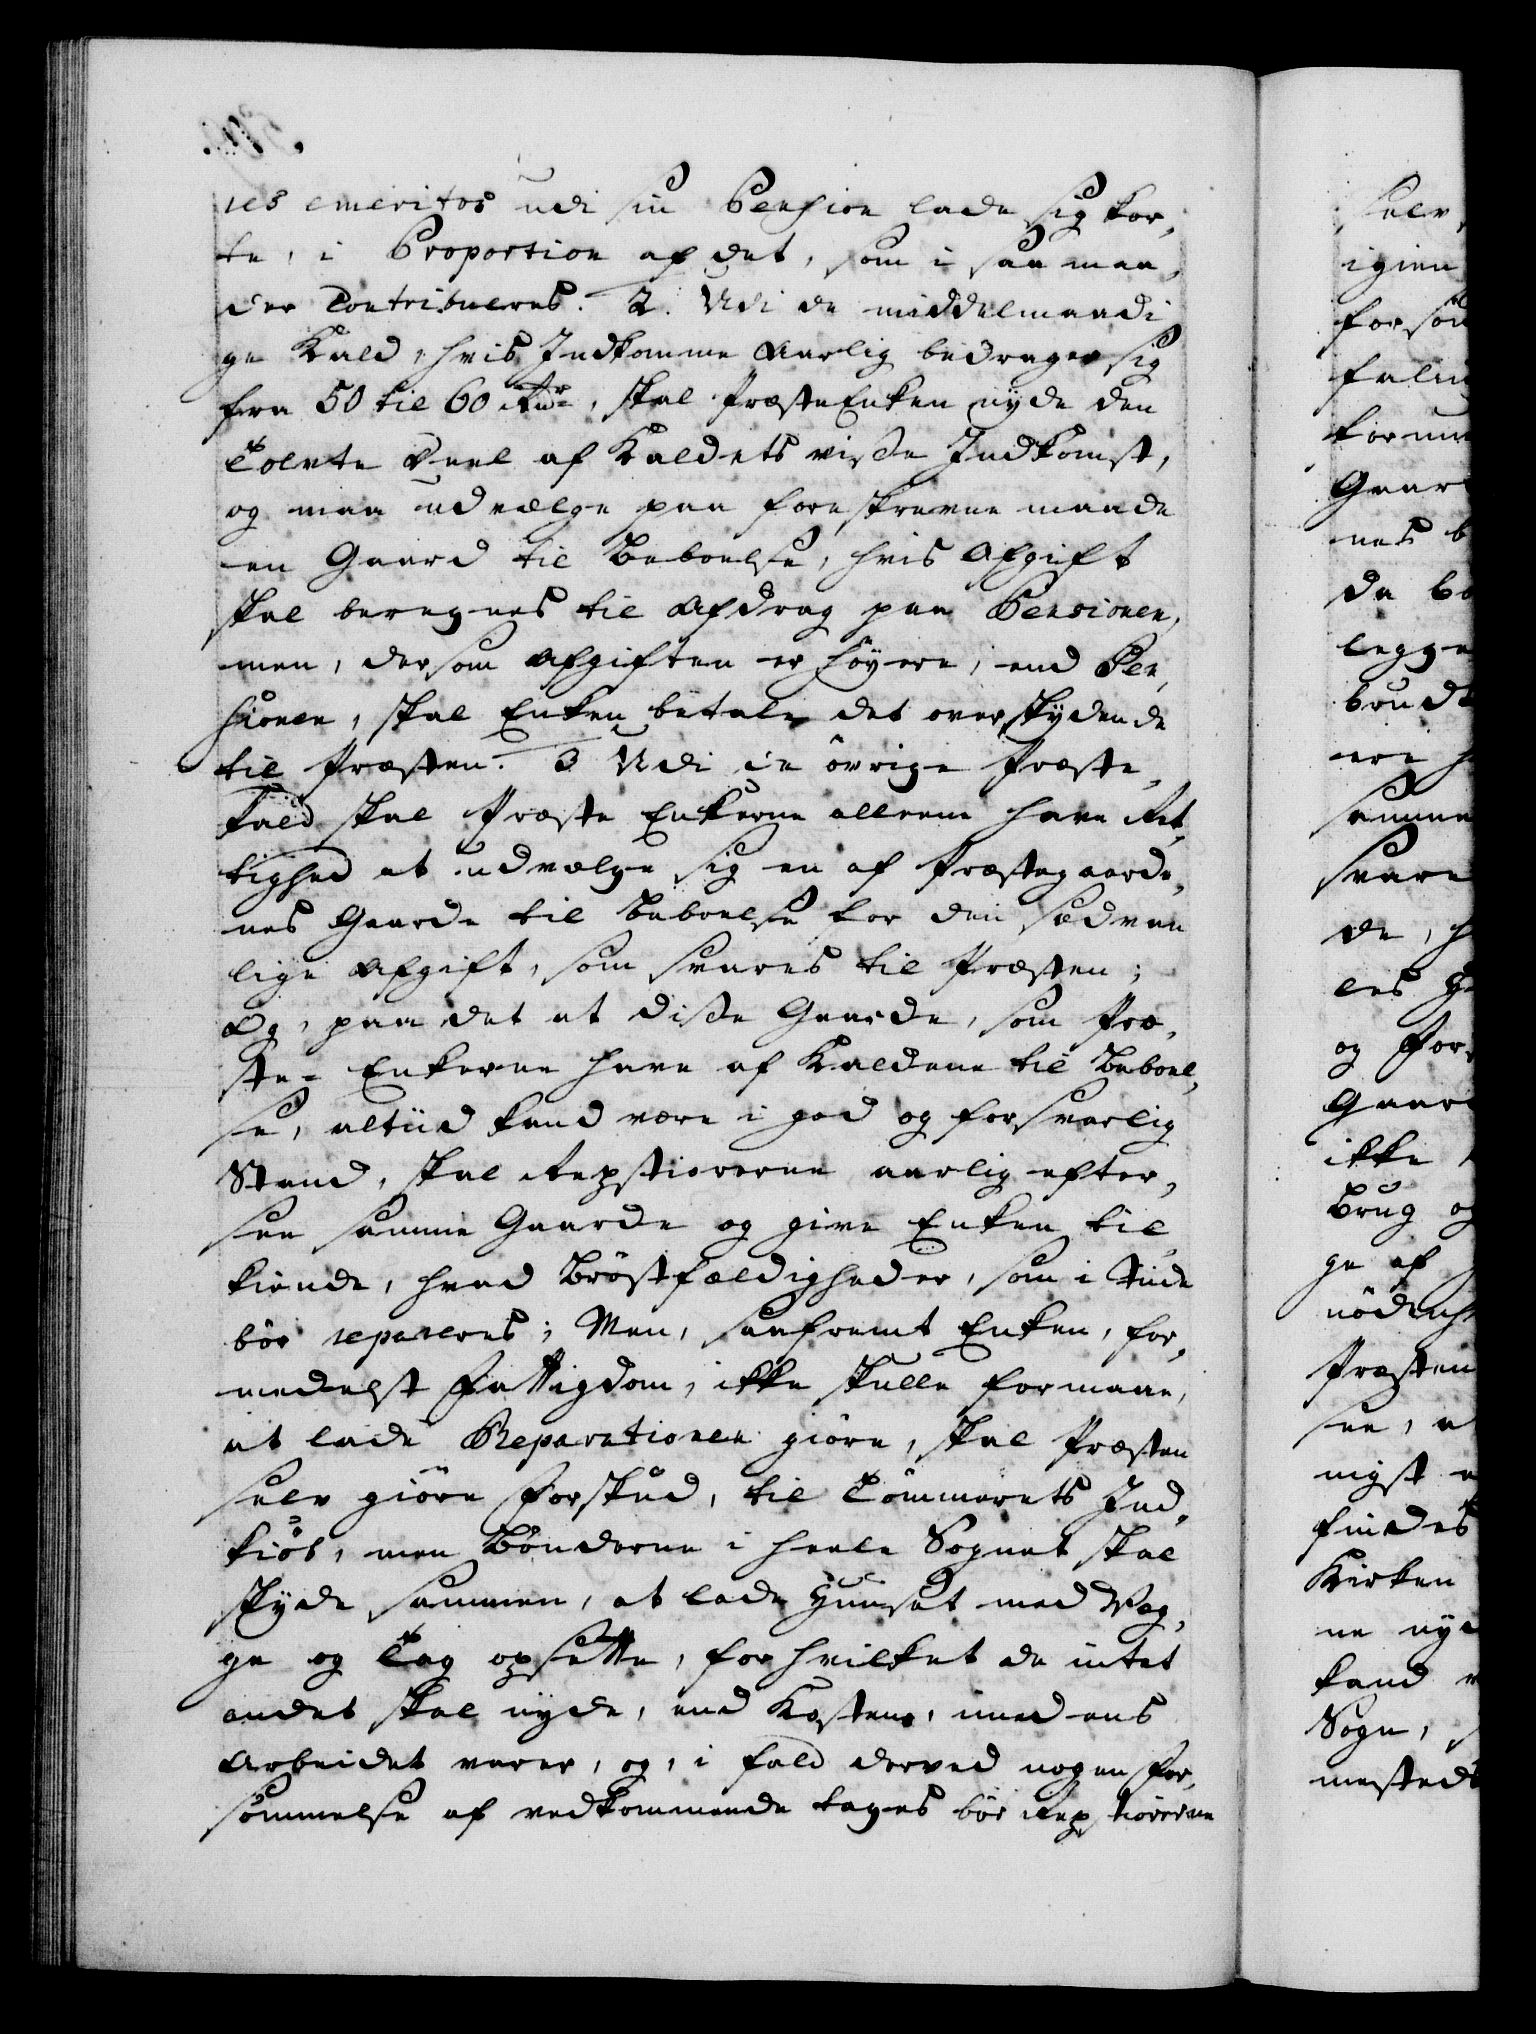 res emeritos udi sin Pension lade sig kor,
te, i Proportion af det, som i saa maa,
der Contribueres. 2. Udi de middelmaadi
ge Kald, hvis Indkomme Aarlig bedrager sig
fra 50 til 60 Rdr, skal Præste Enken nyde den
Tolvte Deel af Kaldets visse Indkomst,
og maa udvælge paa foreskrevne maade
en Gaard til Beboelse, hvis Afgift
skal beregnes til Afdrag paa Pensionen,
men, dersom Afgiften er höyere, end Pen,
sionen, skal Enken betale det overskydende
til Præsten. 3 Udi de övrige Præste,
kald skal Præste Enkerne alleene have Ret,
tighed at udvælge sig en af Præstegaarde,
nes Gaarde til Beboelse for den sædvan
lige Afgift, som svares til Præsten;
Og, paa det at disse Gaarde, som Præ,
ste- Enkerne have af Kaldene til Beboel,
se, altiid kand være i god og forsvarlig
Stand, skal Repstiorerne aarlig efter,
see samme Gaarde og give Enken til
kiende, hvad Bröstfældigheder, som i Tiide
bör repareres; Men, saafremt Enken, for,
medelst Fattigdom, ikke skulle formaae,
at lade Reparationen giöre, skal Præsten
selv giöre Forskud, til Tömmerets Ind,
kiöb, men Bönderne i heele Sognet skal
skyde sammen, at lade Huuset med Veg,
ge og Tag opsette, for hvilket de intet
andet skal nyde, end Kosten, imedens
Arbeidet varer, og, i fald derved nogen For,
sömmelse af vedkommende tages bör Repstiörerne
selv,
igien
falu
Gaar
nes b
da bo
legge
ere h
samme
svare
de, h
les G
og For
Gaar
ikke
Brug og
ge af
Præsten
see, a
nigst
findes
Kirken
ne nye
kand
Sogn,
mested